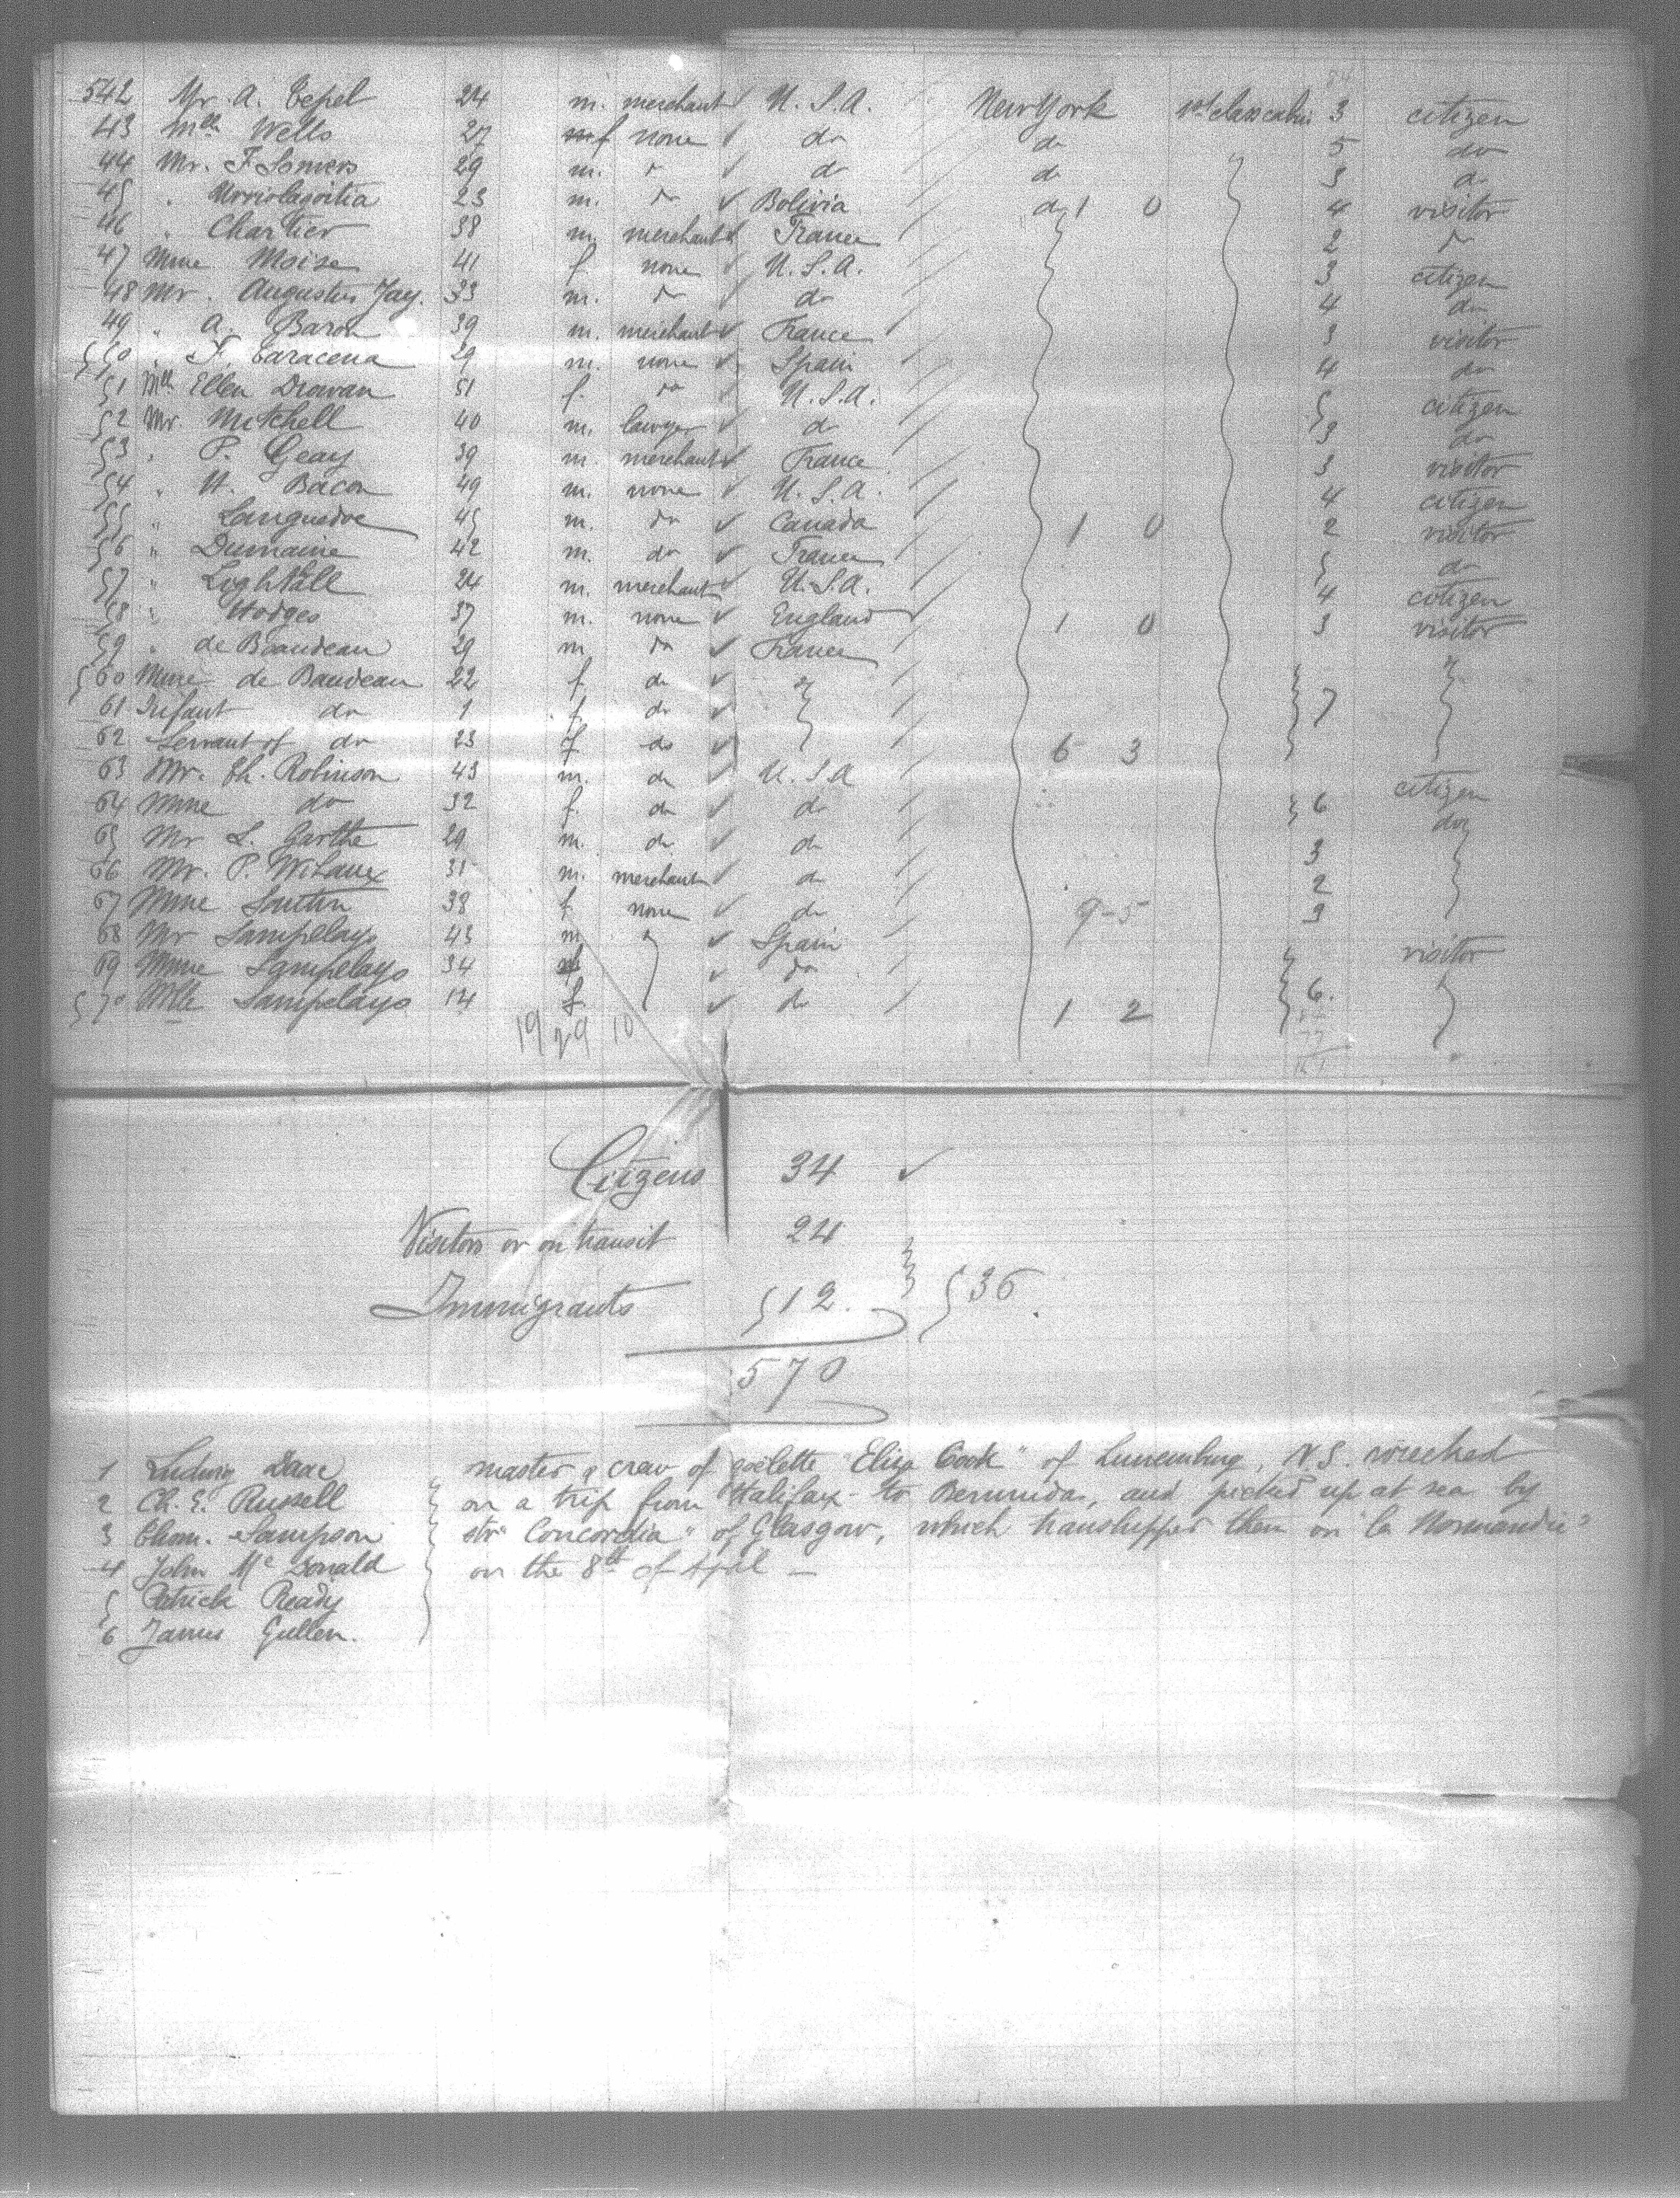 542 Mr. A. Tepel 24 m. merchant U.S.A. New York 1st class cabin 3 citizen
43 Mlle Wells 27 f none do do 5 do
44 Mr. F. Somers 29 m. do do do 3 do
45 " Urriolagoitia 23 m. do Bolivia do 1 0 4 visitor
46 " Chartier 38 m. merchant France 2 do
47 Mme Moise 41 f. none U.S.A. 3 citizen
48 Mr. Augustus Jay. 33 m. do do 4 do
49 " A. Baron 39 m. merchant France 3 visitor
550 " F. Taracena 29 m. none Spain 4 do
51 Mlle Ellen Drowan 51 f. do U.S.A. 5 citizen
52 Mr. Mitchell 40 m. lawyer do 3 do
53 " P. Geay 39 m. merchant France 3 visitor
54 " Bacon 49 m. none U.S.A. 4 citizen
55 " Languedoc 45 m. do Canada 1 0 2 visitor
56 " Dumaine 42 m. do France 5 do
57 " Lighthall 24 m. merchant U.S.A. 4 citizen
58 " Hodges 37 m. none England 1 0 3 visitor
59 " de Baudeau 29 m do France
560 Mme de Baudeau 22 f. do
61 Infant do 1 f. do 7
62 Servant of do 23 f do 6 3
63 Mr. Th. Robinson 43 m. do U.S.A citizen
64 Mme do 32 f. do do 6 do
65 Mr L. Garthe 29 m. do do 3
66 Mr. P. 31 m. merchant do 2
67 Mme 38 f none do 9-5 3
68 Mr Sampelayo 43 m Spain visitor
69 Mme Sampelayo 34 f do
570 Mlle Sampelayo 14 f. do 1 2 6.
19 29 10
Citizens 34
Visitors or on transit 24
Immigrants 512. 536.
570
1 Ludwig master & crew of goëlette "Eliza Cook" of Lunenburg, N.S. wrecked
2 Ch. E. Russell on a trip from Halifax to Bermudas, and picked up at sea by
3 Thom. Sampson str "Concordia" of Glasgow, which transhipped them on "la Normandie"
4 John Mc Donald on the 8th of April —
5 Patrick Ready
6 James Gullen.